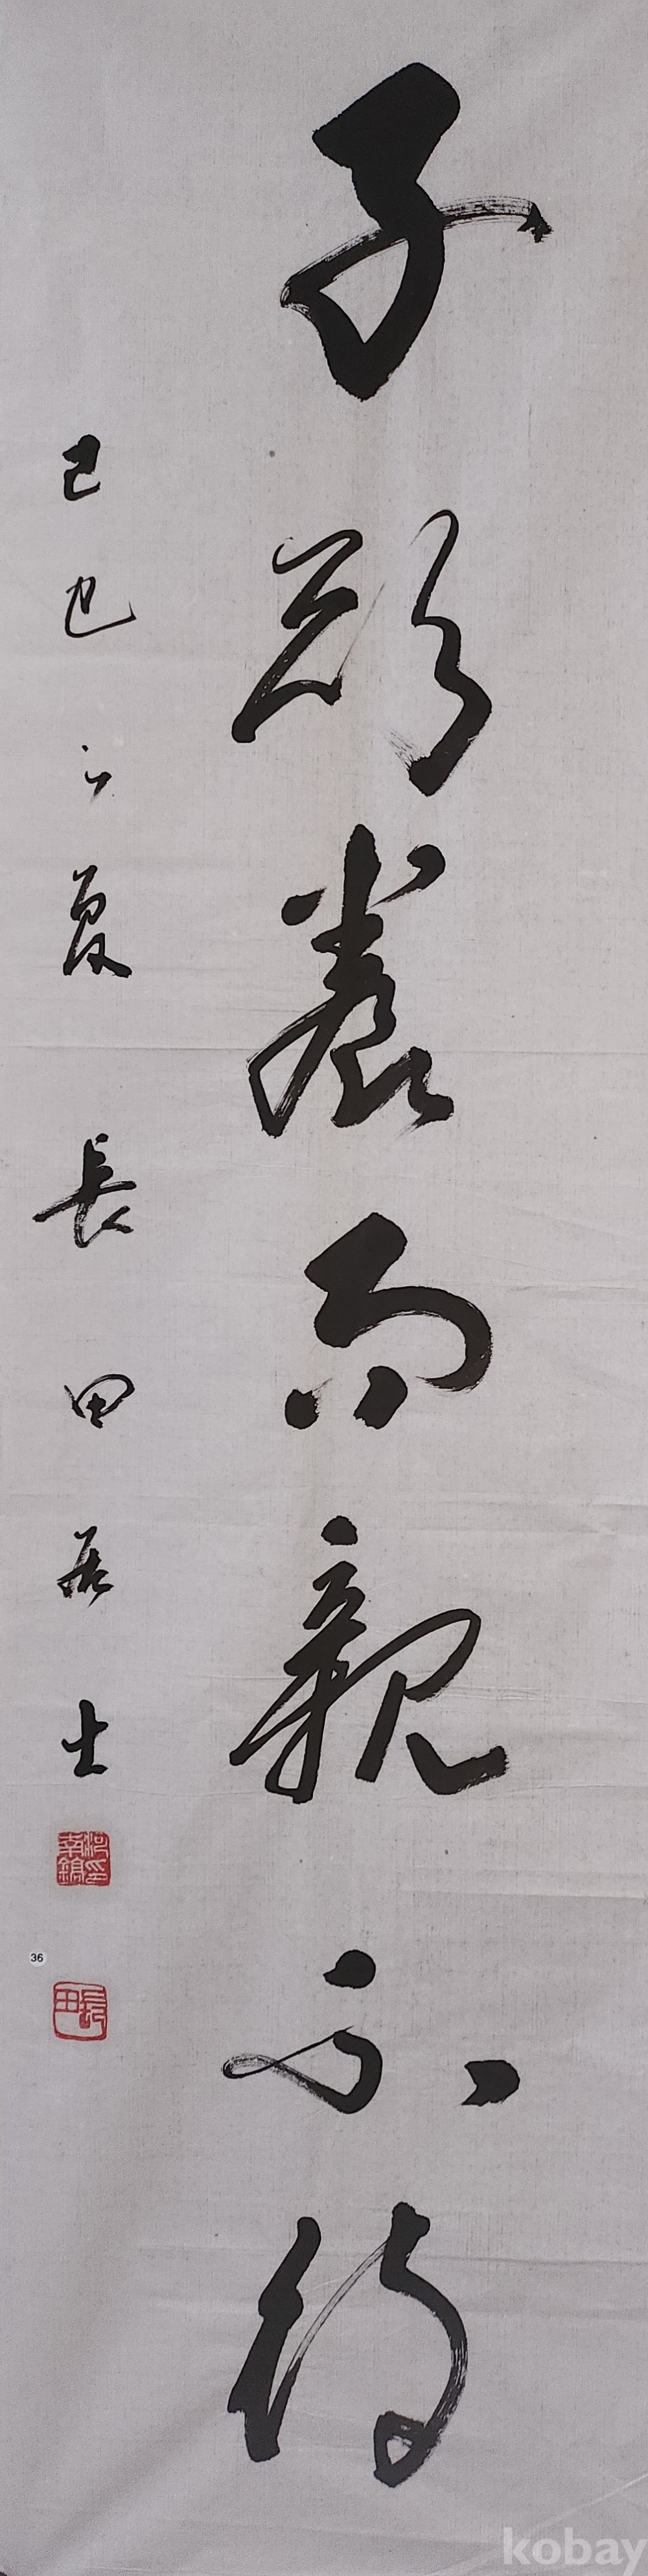 子欲養而親不待
己巳之夏 長田居士
36
kobay